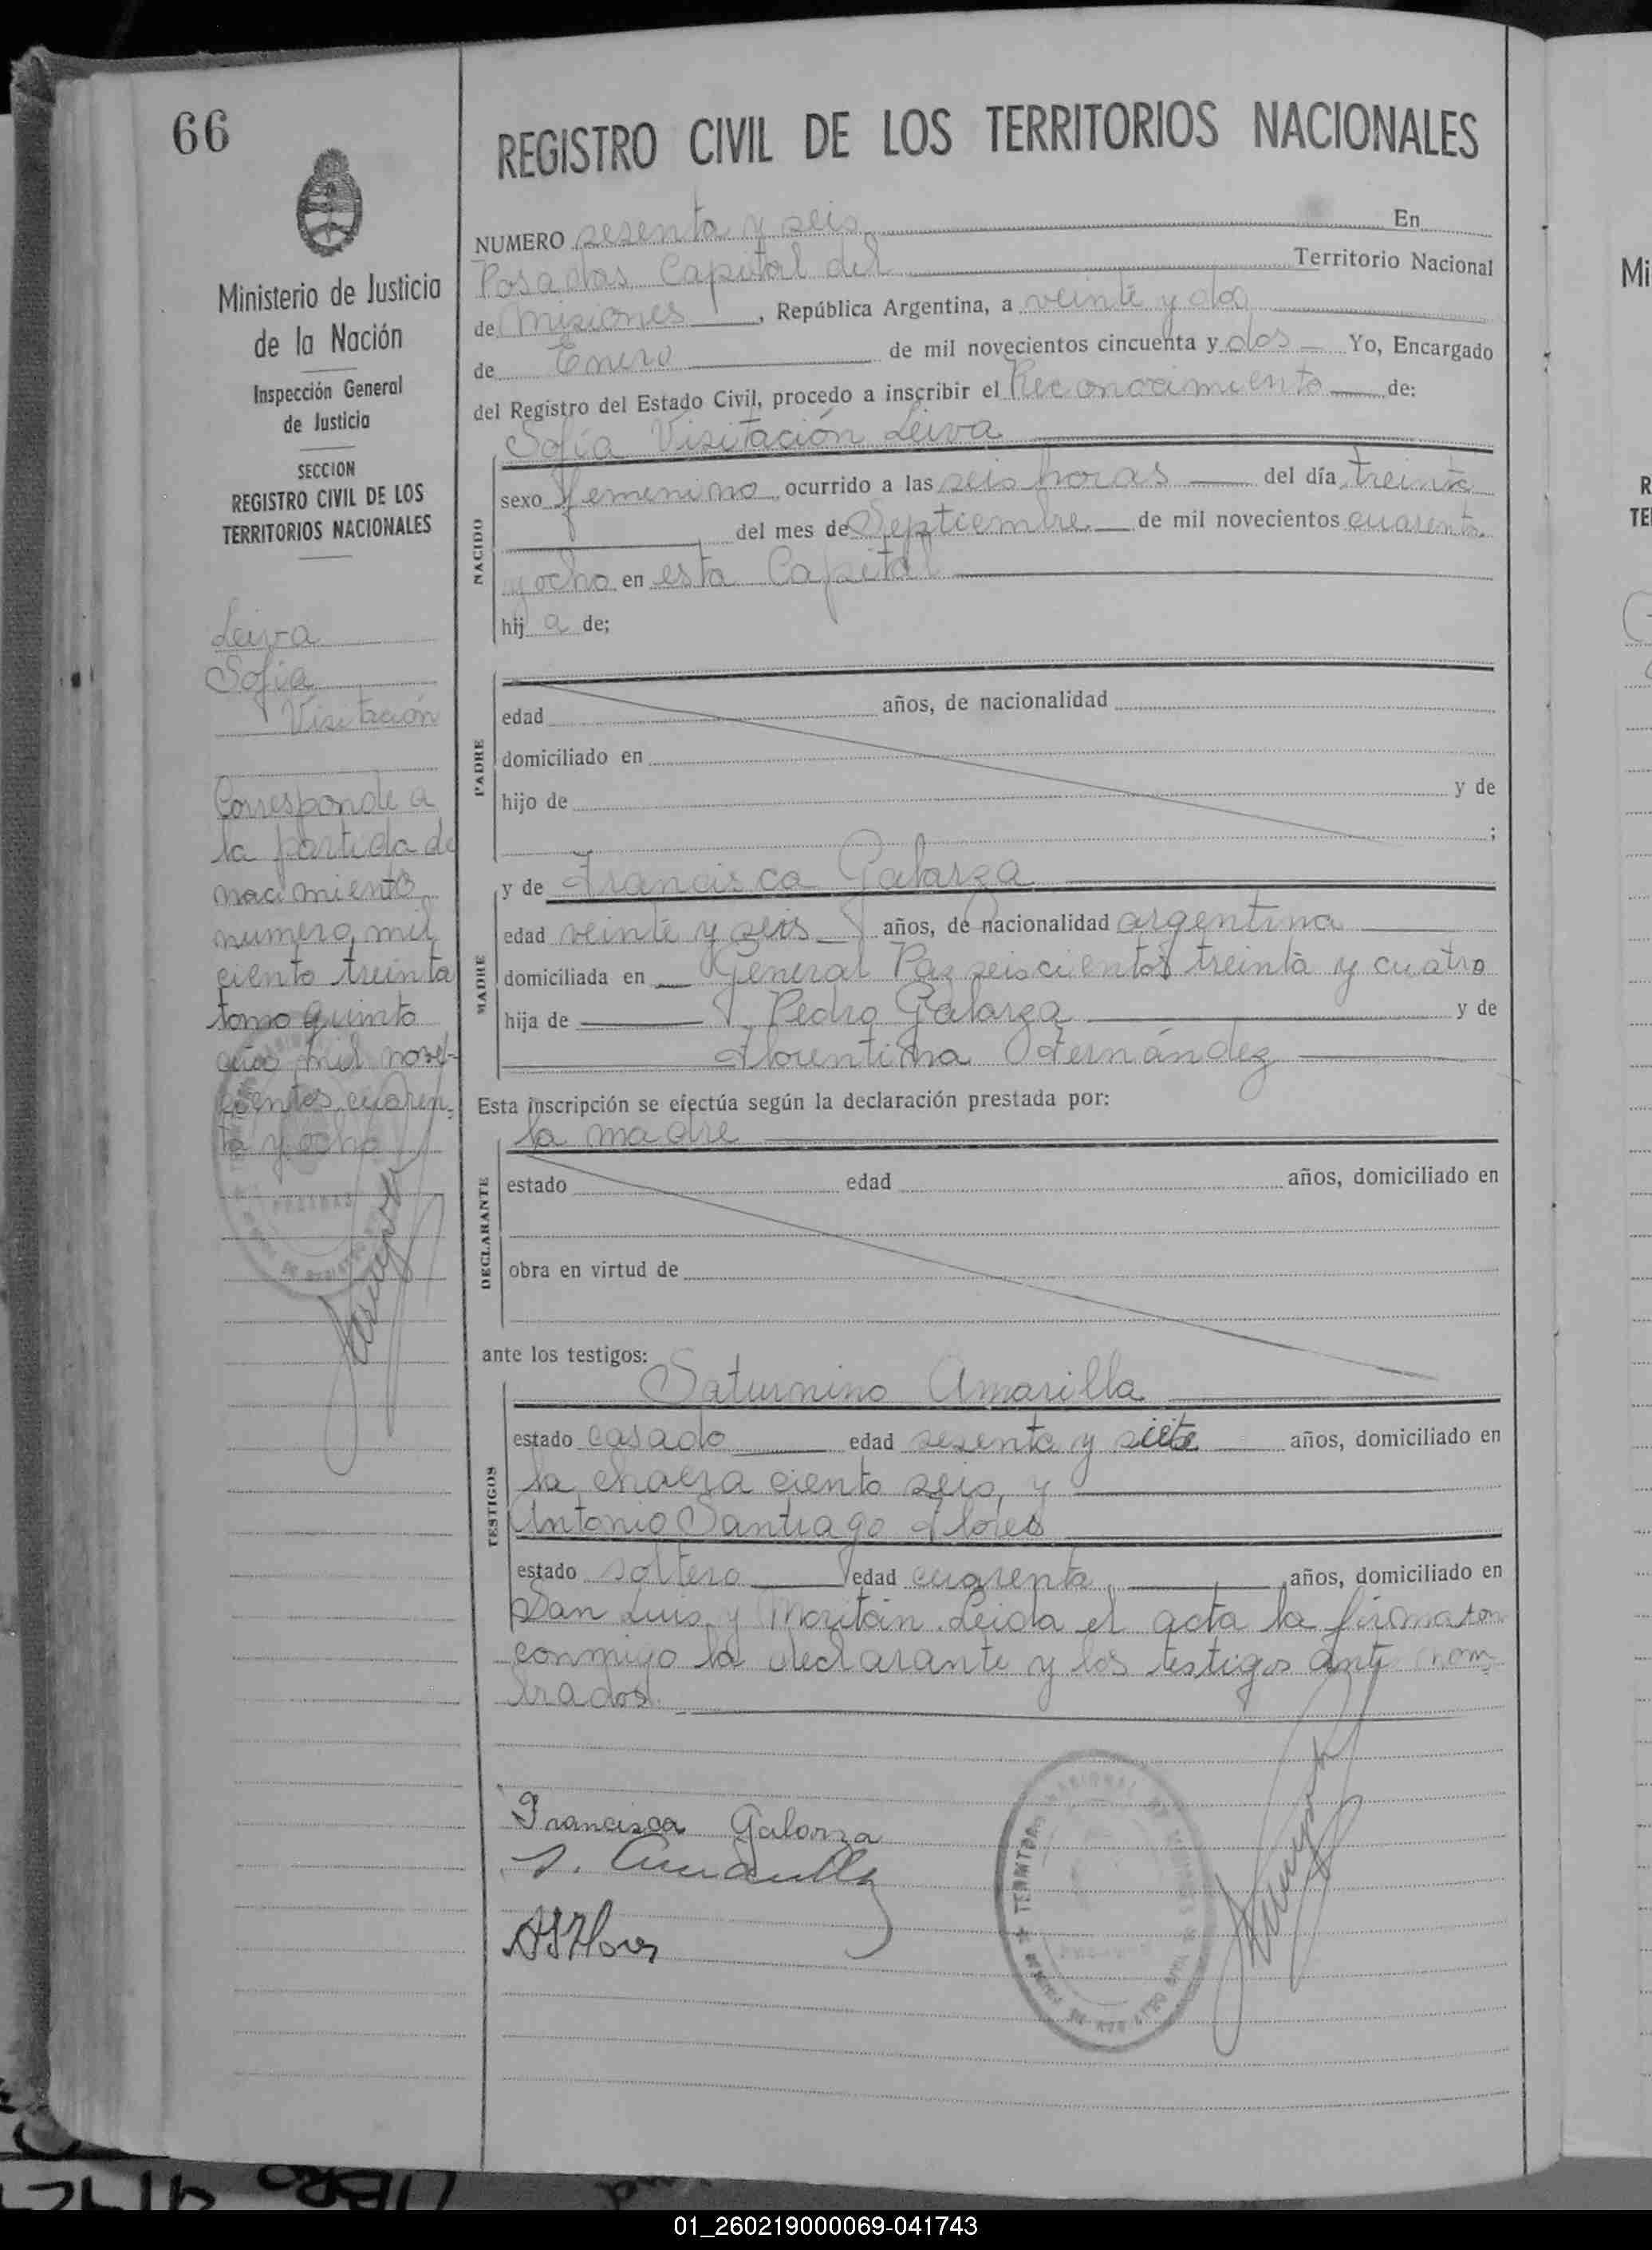 66
Ministerio de Justicia
de la Nación
Inspección General
de Justicia
SECCION
REGISTRO CIVIL DE LOS
TERRITORIOS NACIONALES
Leiva
Sofía
Visitación
Corresponde a
la partida de
nacimiento
numero mil
ciento treinta
tomo quinto
año mil nove-
cientos cuaren-
ta y ocho
REGISTRO CIVIL DE LOS TERRITORIOS NACIONALES
NUMERO sesenta y seis En
Posadas Capital del Territorio Nacional
de Misiones, República Argentina, a veinte y dos
de Enero de mil novecientos cincuenta y dos Yo, Encargado
del Registro del Estado Civil, procedo a inscribir el Reconocimiento de:
Sofía Visitación Leiva
NACIDO
sexo femenino ocurrido a las seis horas del día treinta
del mes de Septiembre de mil novecientos cuarenta
y ocho en esta Capital
hij a de;
PADRE
edad años, de nacionalidad
domiciliado en
hijo de y de
;
MADRE
y de Francisca Galarza
edad veinte y seis años, de nacionalidad argentina
domiciliada en General Paz seiscientos treinta y cuatro
hija de Pedro Galarza y de
Florentina Fernández
Esta inscripción se efectúa según la declaración prestada por:
la madre
DECLARANTE
estado edad años, domiciliado en
obra en virtud de
ante los testigos:
Saturnino Amarilla
TESTIGOS
estado casado edad sesenta y siete años, domiciliado en
la chacra ciento seis, y
Antonio Santiago Flores
estado soltero edad cuarenta años, domiciliado en
San Luis y Moritán. Leida el acta la firmaron
conmigo la declarante y los testigos ante nom-
brados.
Francisca Galarza
S. Amarilla
ASFlores
TERRITORIO NACIONAL DE
Mi
R
TE
01_260219000069-041743